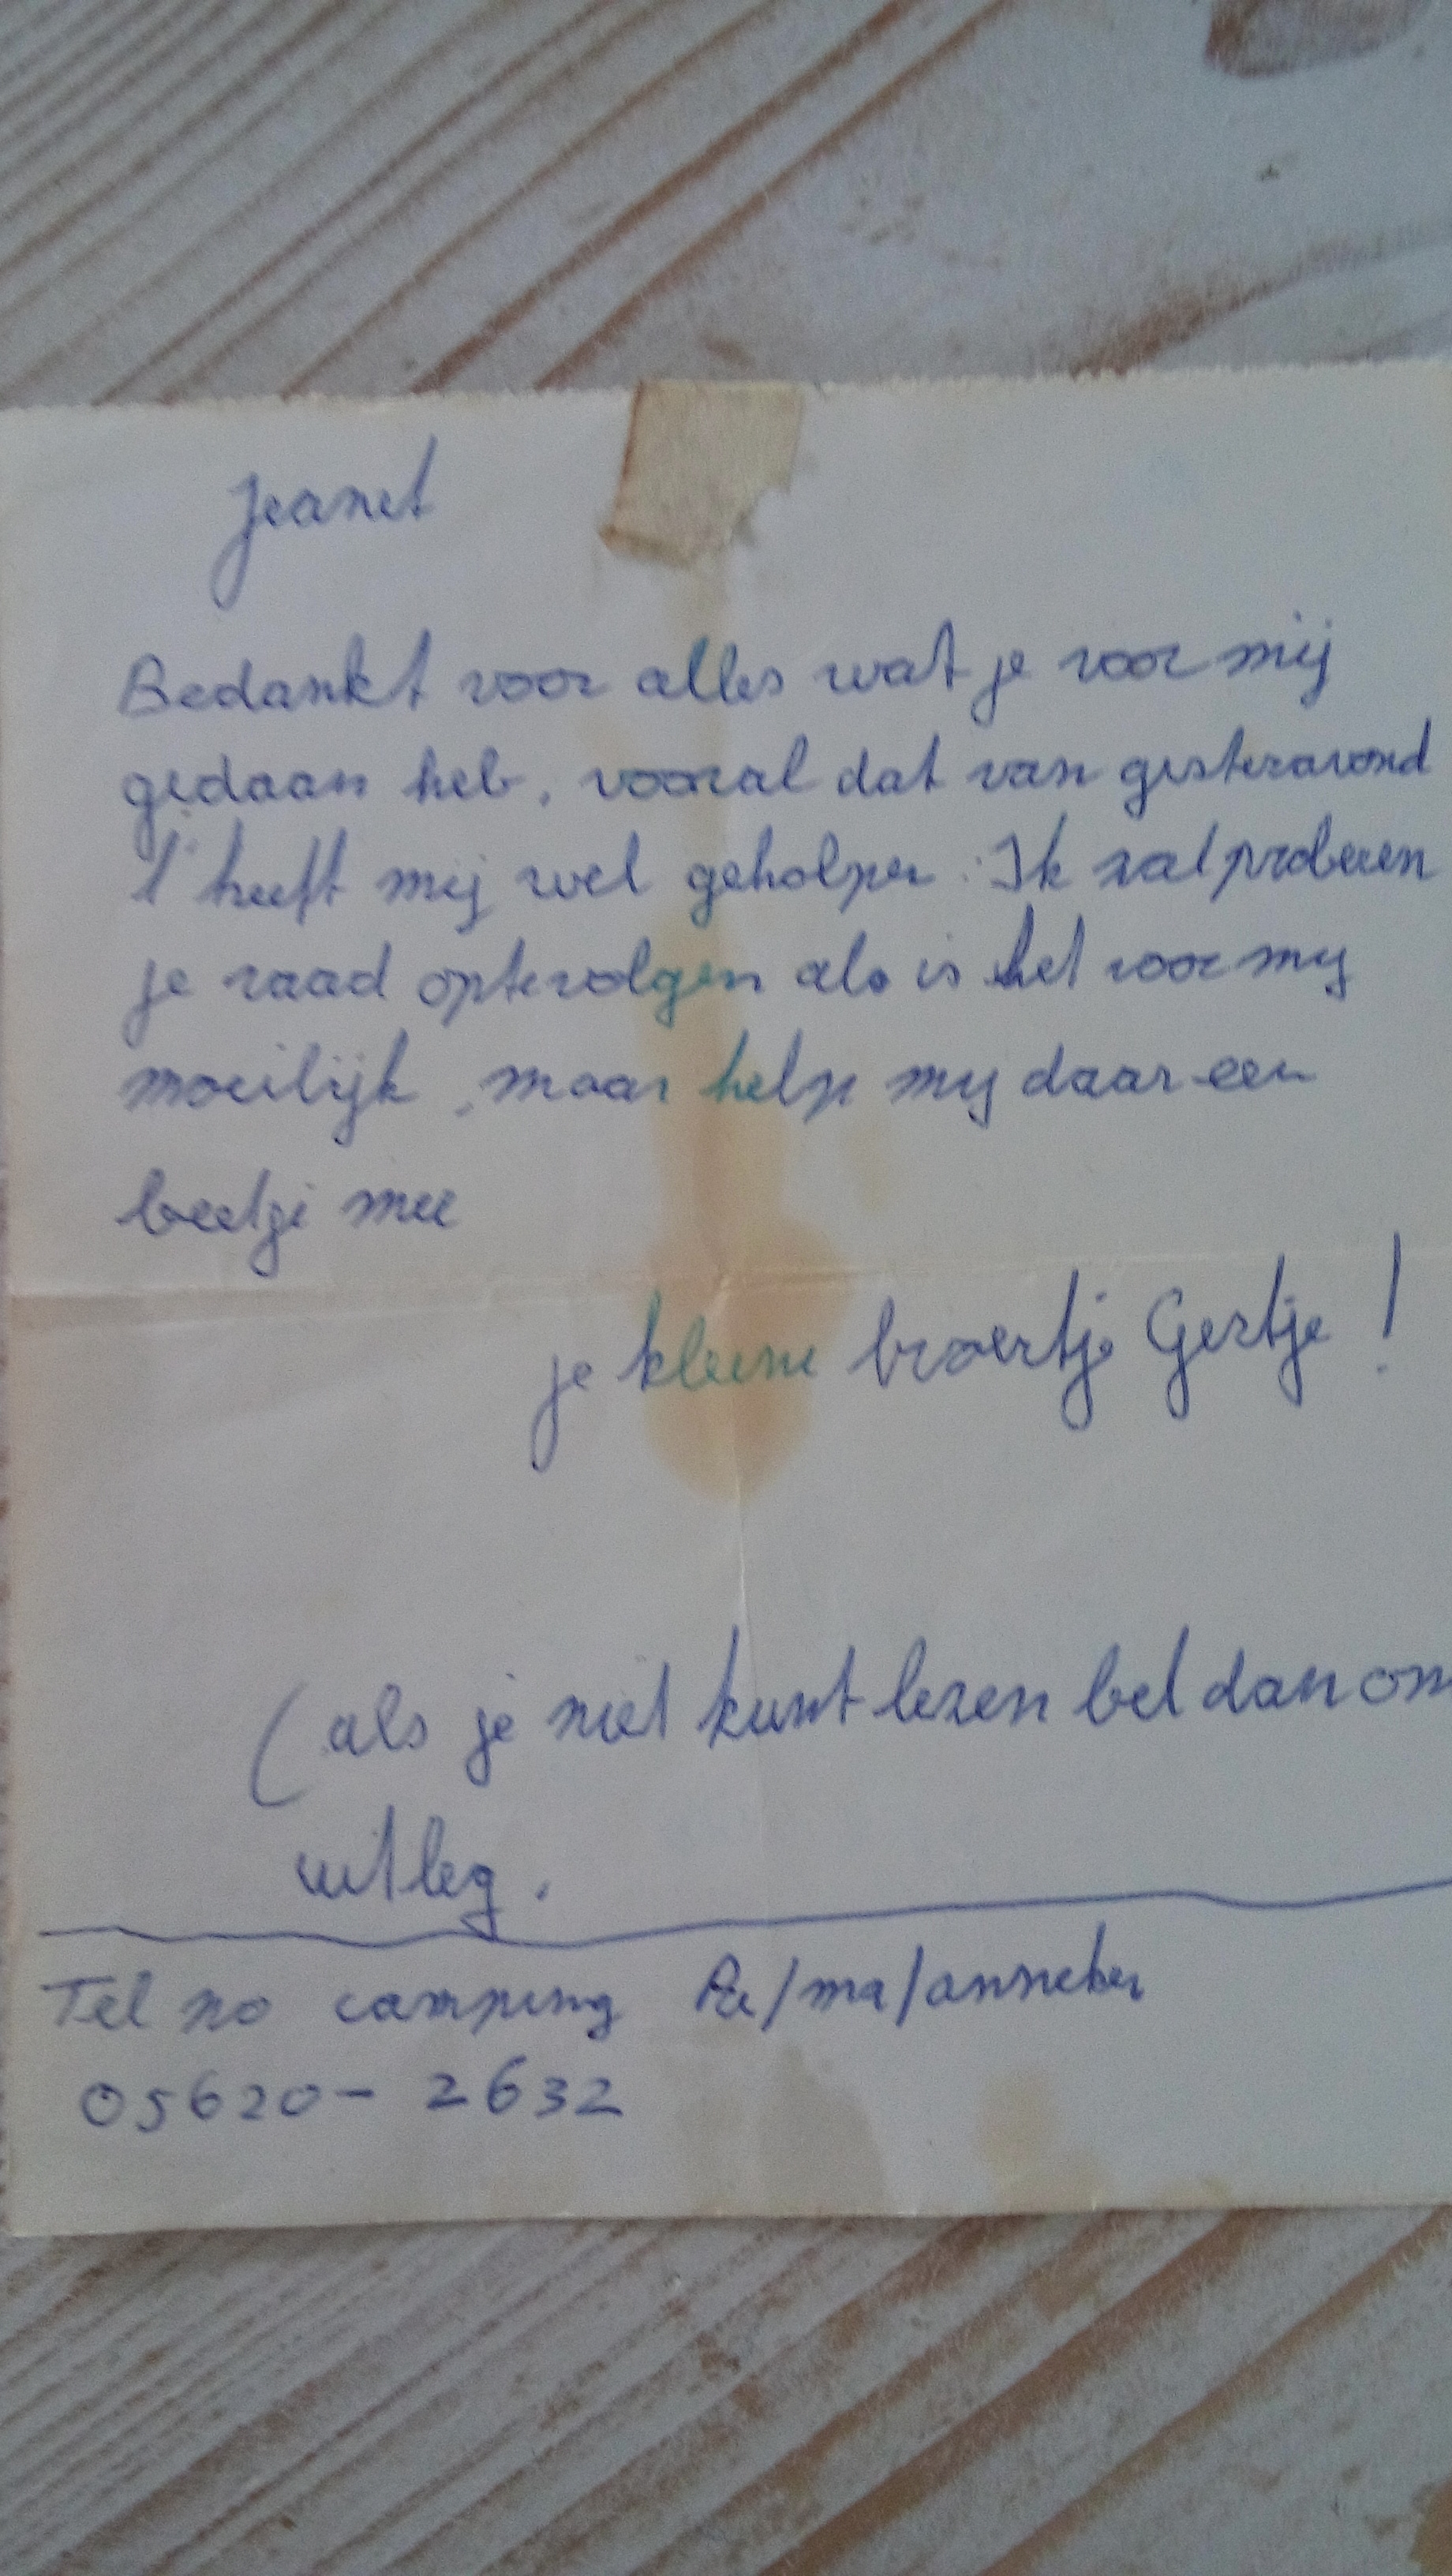 Jeanet
Bedankt voor alles wat je voor mij
gedaan heb, vooral dat van gisteravond
't heeft mij wel geholpen. Ik zal proberen
je raad optevolgen als is het voor mij
moeilijk, maar help mij daar een
beetje mee
je kleine broertje Gertje!
(als je niet kunt lezen bel dan om
uitleg.
Tel no camping Pa/ma/anneke
05620-2632